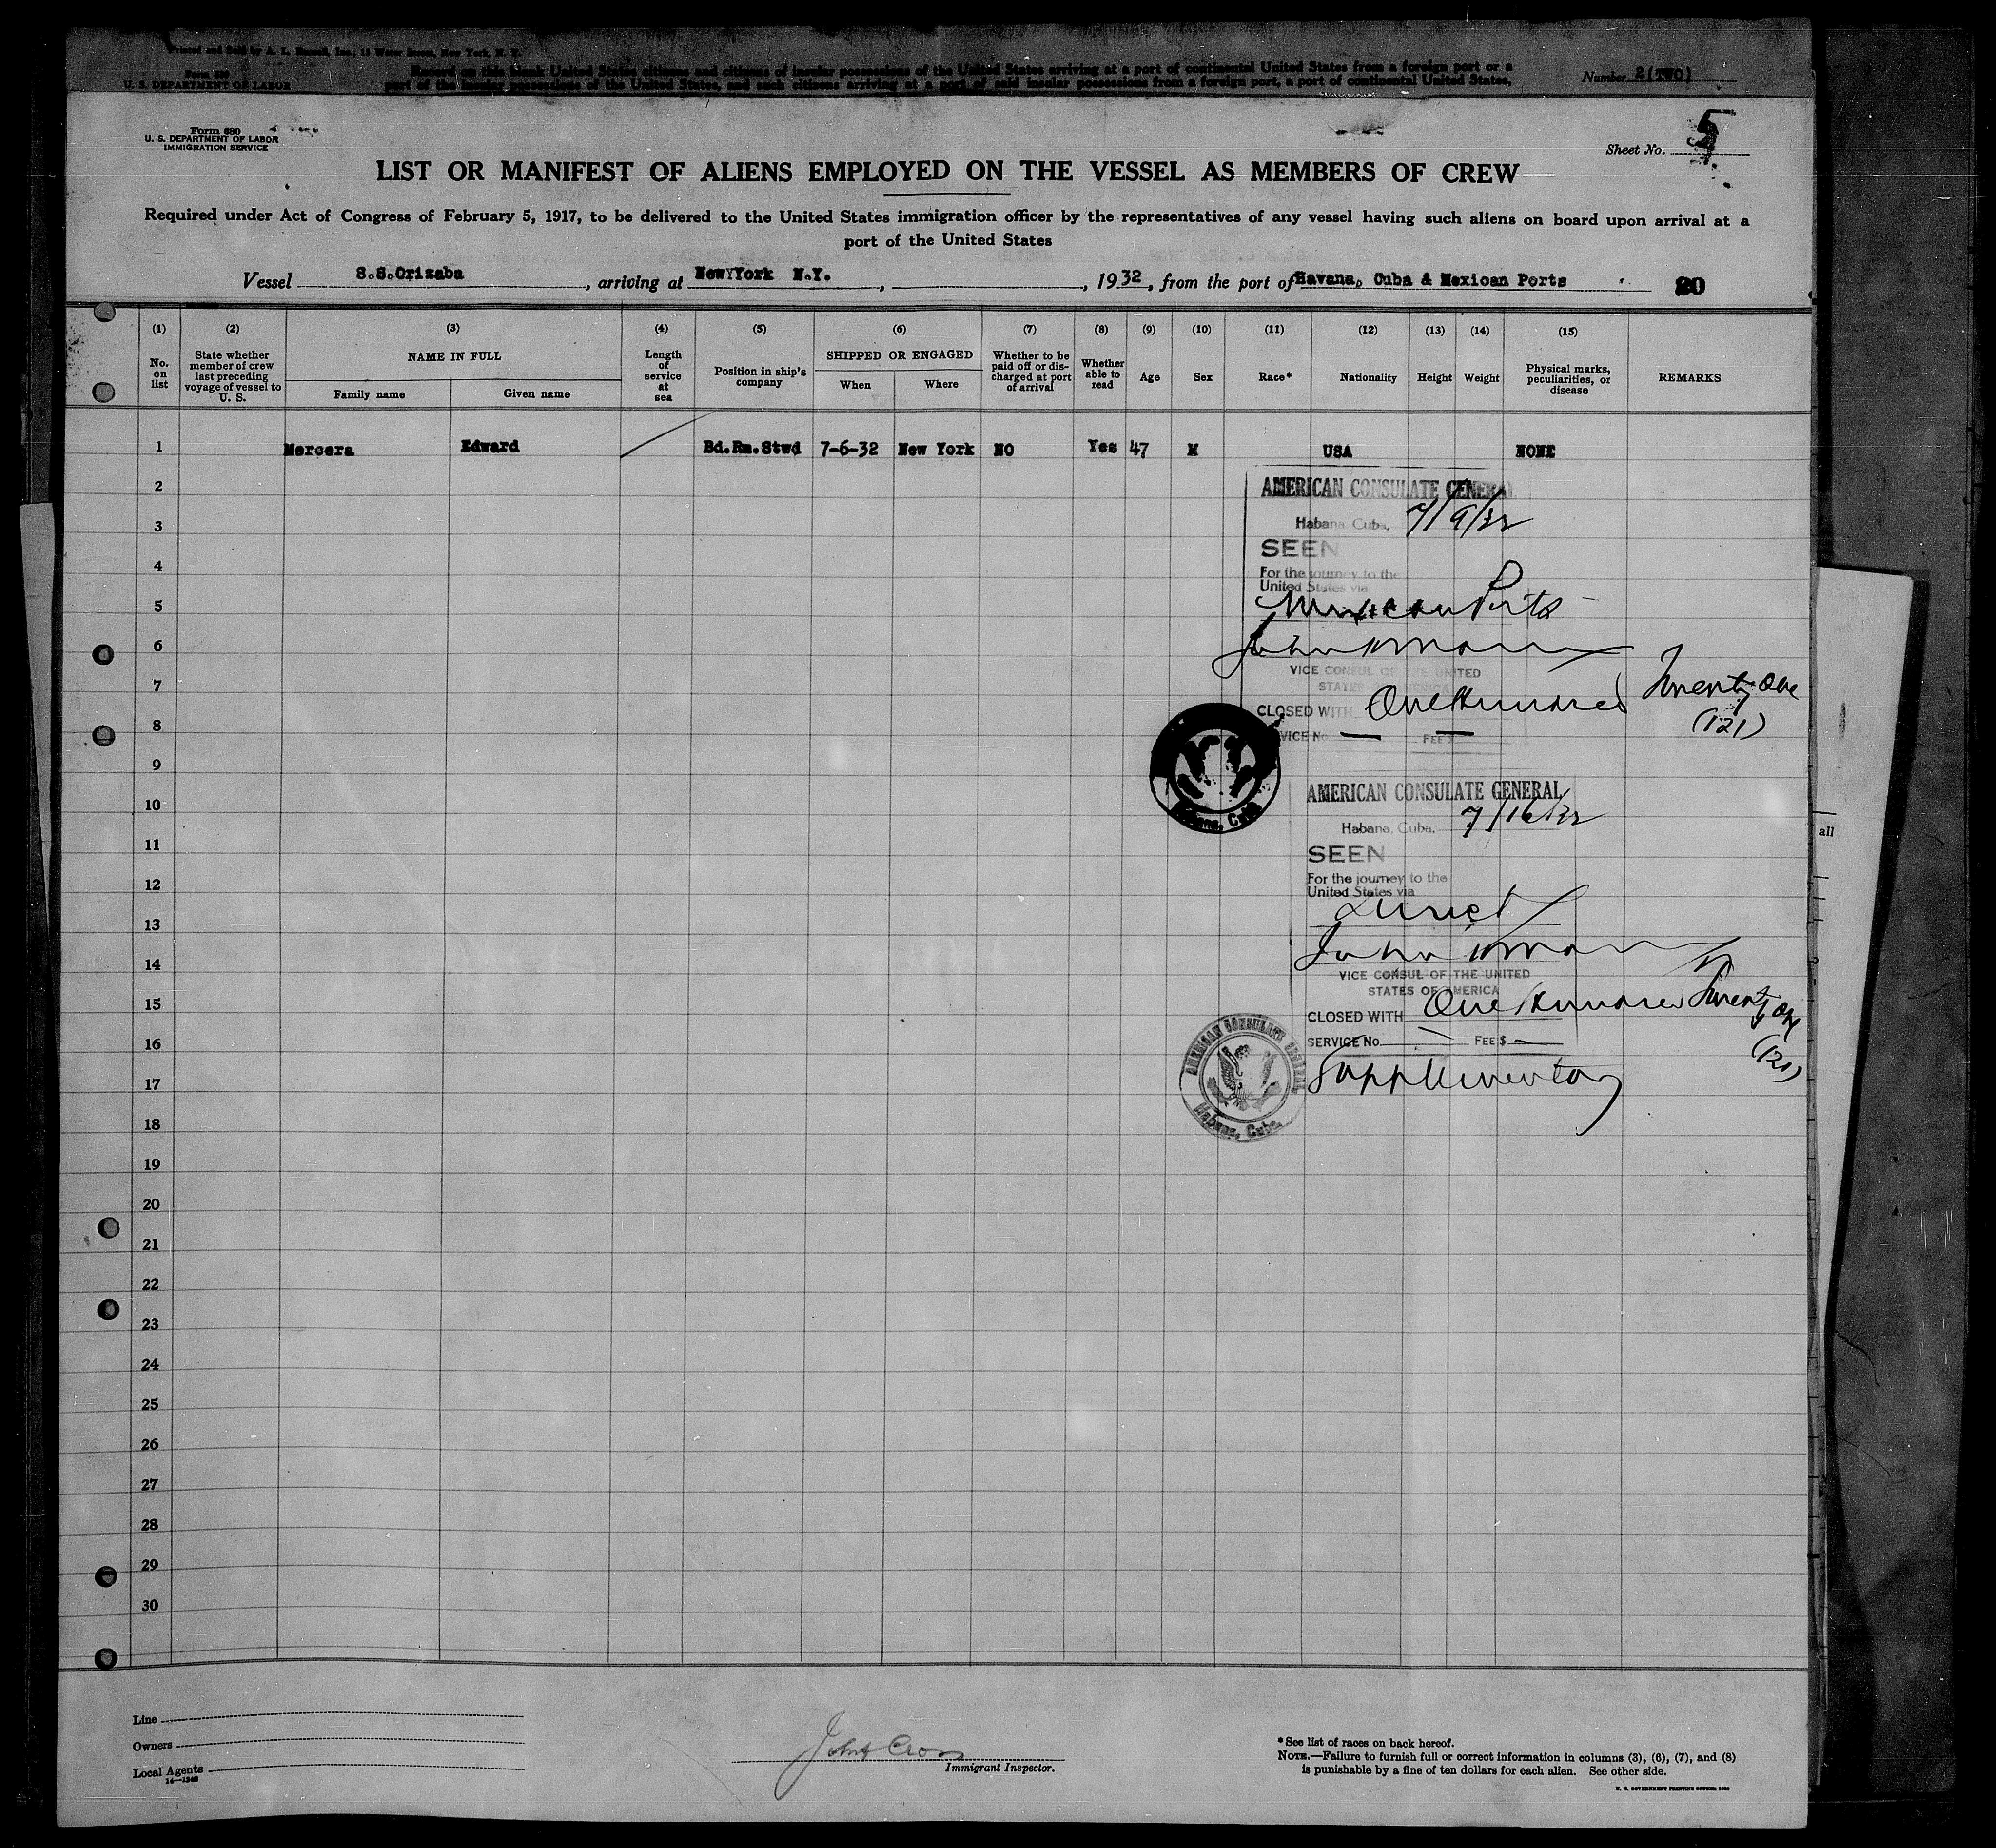 Printed and Sold by A. L. Russell, Inc., 15 Water Street, New York, N. Y.
Form 630
U. S. DEPARTMENT OF LABOR
Record on this blank United States citizens and citizens of insular possessions of the United States arriving at a port of continental United States from a foreign port or a
part of the insular possessions of the United States, and such citizens arriving at a port of said insular possessions from a foreign port, a port of continental United States,
Number 2(TWO)
Form 680
U. S. DEPARTMENT OF LABOR
IMMIGRATION SERVICE
Sheet No. 5
LIST OR MANIFEST OF ALIENS EMPLOYED ON THE VESSEL AS MEMBERS OF CREW
Required under Act of Congress of February 5, 1917, to be delivered to the United States immigration officer by the representatives of any vessel having such aliens on board upon arrival at a
port of the United States
Vessel S.S.Orizaba, arriving at NewYYork N.Y., , 1932, from the port of Havana, Cuba & Mexican Ports 20
(1) (2) (3) (4) (5) (6) (7) (8) (9) (10) (11) (12) (13) (14) (15)
No. on list
State whether member of crew last preceding voyage of vessel to U. S.
NAME IN FULL
Family name
Given name
Length of service at sea
Position in ship's company
SHIPPED OR ENGAGED
When
Where
Whether to be paid off or discharged at port of arrival
Whether able to read
Age
Sex
Race*
Nationality
Height
Weight
Physical marks, peculiarities, or disease
REMARKS
1 Mercera Edward Bd.Rm.Stwd 7-6-32 New York NO Yes 47 M USA NONE
2
3
4
5
6
7
8
9
10
11
12
13
14
15
16
17
18
19
20
21
22
23
24
25
26
27
28
29
30
AMERICAN CONSULATE GENERAL
Habana, Cuba, 7/9/32
SEEN
For the journey to the
United States via
Mexican Ports
VICE CONSUL OF THE UNITED
STATES
CLOSED WITH One Hundred Twenty One
(121)
SERVICE No. — FEE $ —
Habana, Cuba
AMERICAN CONSULATE GENERAL
Habana, Cuba, 7/16/32
SEEN
For the journey to the
United States via
Direct
VICE CONSUL OF THE UNITED
STATES OF AMERICA
CLOSED WITH One Hundred Twenty One
(121)
SERVICE No. — FEE $ —
Supplementary
AMERICAN CONSULATE GENERAL
Habana, Cuba.
all
Line
Owners
Local Agents
14—1240
John Cross
Immigrant Inspector.
*See list of races on back hereof.
NOTE.—Failure to furnish full or correct information in columns (3), (6), (7), and (8)
is punishable by a fine of ten dollars for each alien. See other side.